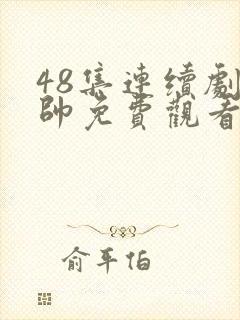 48集連續劇
帥免費觀看
俞平伯